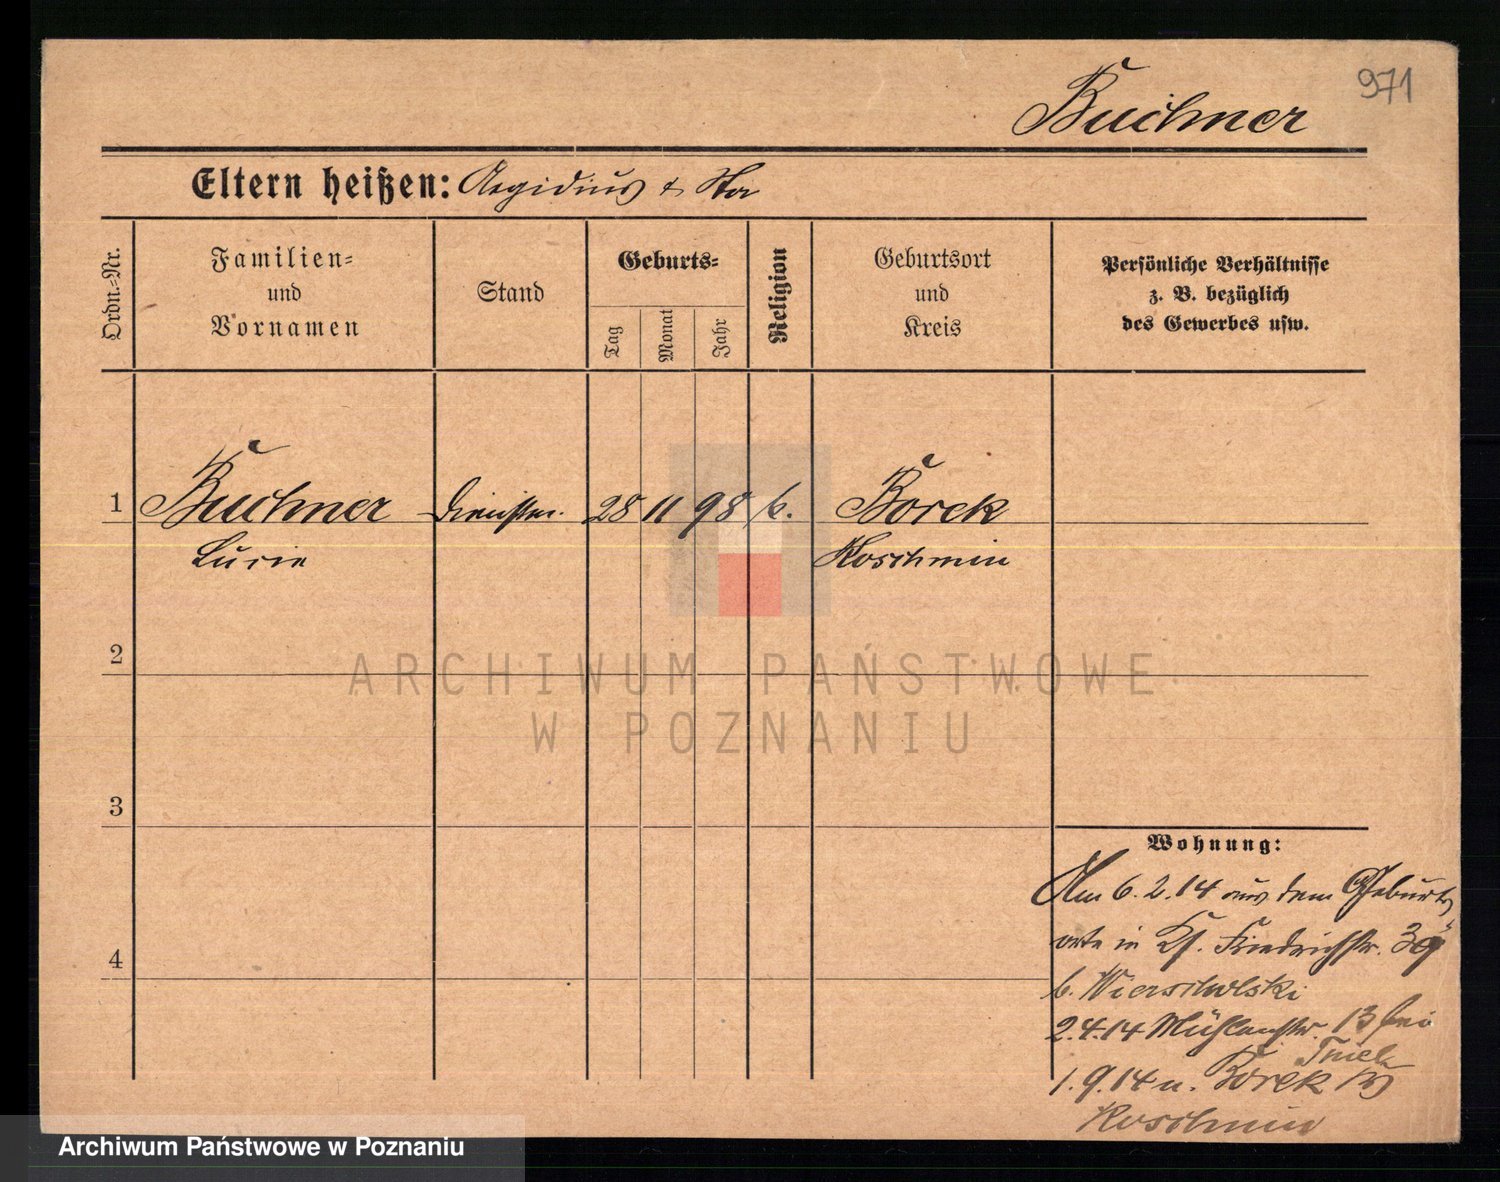 971
Buchner
Eltern heißen: Aegidius &
Ordn.-Nr.
Familien-
und
Vornamen
Stand
Geburts-
Tag
Monat
Jahr
Religion
Geburtsort
und
Kreis
Persönliche Verhältnisse
z. B. bezüglich
des Gewerbes usw.
1 Buchner 28 11 98 k. Borek
Lucie Koschmin
2
3
4
Wohnung:
Am 6.2.14 aus dem Geburts
orte in Friedrichstr. 39
b.
2.4.14 Mühlenstr. 13 bei
Thiel
1.9.14 n. Borek Kr
Koschmin
ARCHIWUM PAŃSTWOWE
W POZNANIU
Archiwum Państwowe w Poznaniu